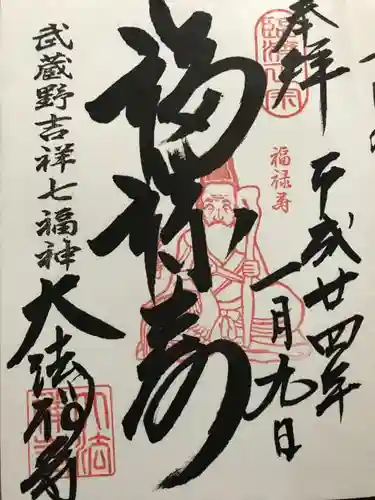 奉拝
臨済正宗
平成廿四年
一月九日
福禄寿
福禄寿
武蔵野吉祥七福神
大法禅寺